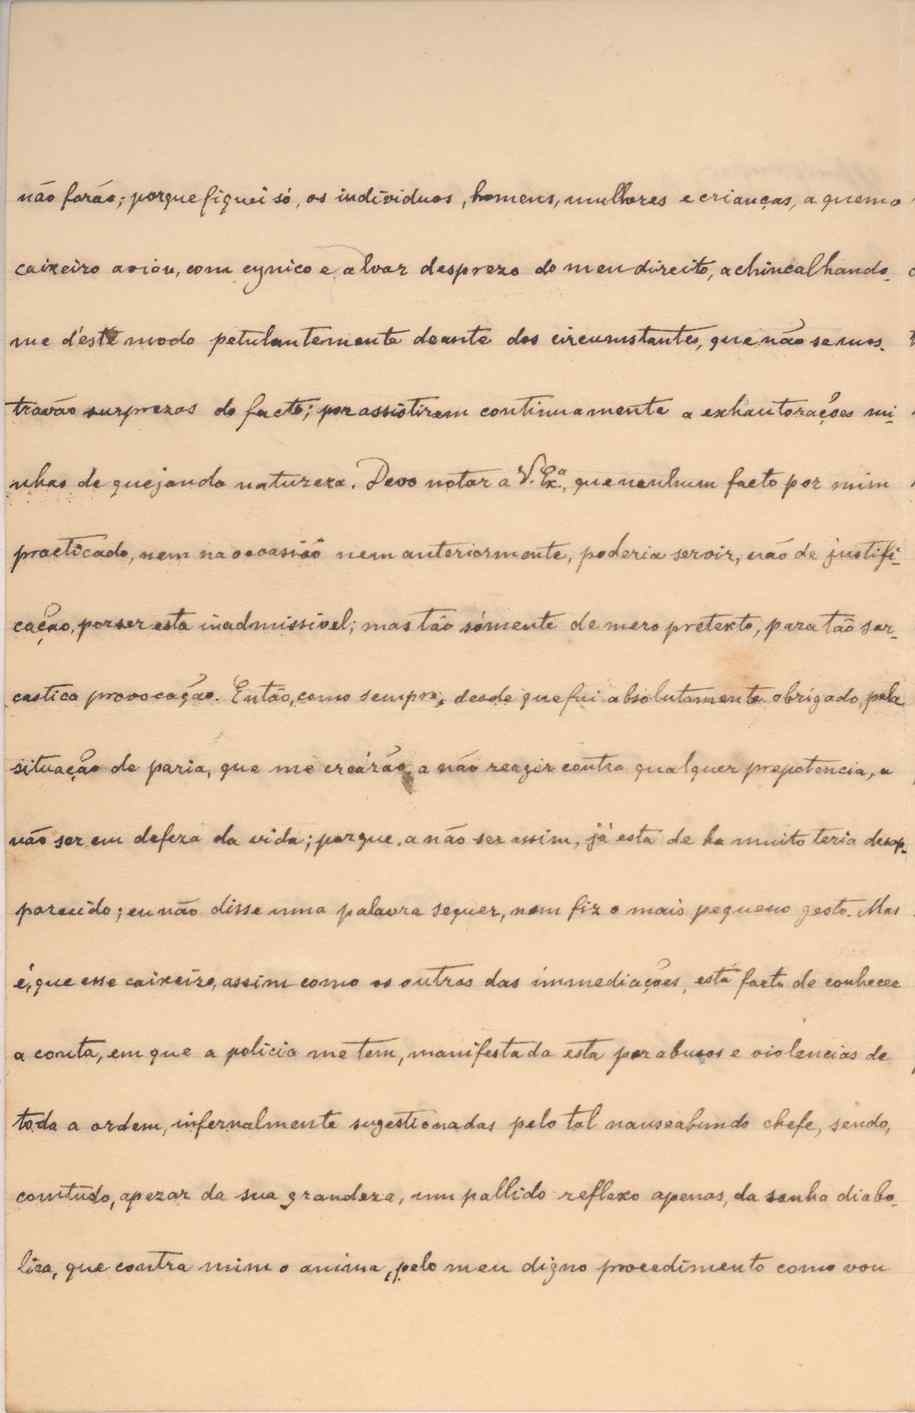 não forão; porque fiquei só, os individuos, homens, mulheres e crianças, a quem o
caixeiro aviou, com cynico e alvar desprezo do meu direito, achincalhando-
me d'este modo petulantemente deante dos circumstantes, que não se mos-
travão surprezos do facto; por assistirem continuamente a exhautorações mi-
nhas de quejanda natureza. Devo notar a V. Exª, que nenhum facto por mim
practicado, nem na occasião nem anteriormente, poderia servir, não de justifi-
cação, por ser esta inadmissivel; mas tão sómente de mero pretexto, para tão sar-
castica provocação. Então, como sempre, desde que fui absolutamente obrigado, pela
situação de paria, que me creárão, a não reagir contra qualquer prepotencia, a
não ser em defeza da vida; porque, a não ser assim, já esta de ha muito teria desap-
parecido; eu não disse uma palavra sequer, nem fiz o mais pequeno gesto. Mas
é, que esse caixeiro, assim como os outros das immediações, está farto de conhecer
a conta, em que a policia me tem, manifestada esta por abusos e violencias de
toda a ordem, infernalmente sugestionadas pelo tal nauseabundo chefe, sendo,
comtudo, apezar da sua grandeza, um pallido reflexo apenas, da sanha diabo-
lica, que contra mim o anima, pelo meu digno procedimento como vou